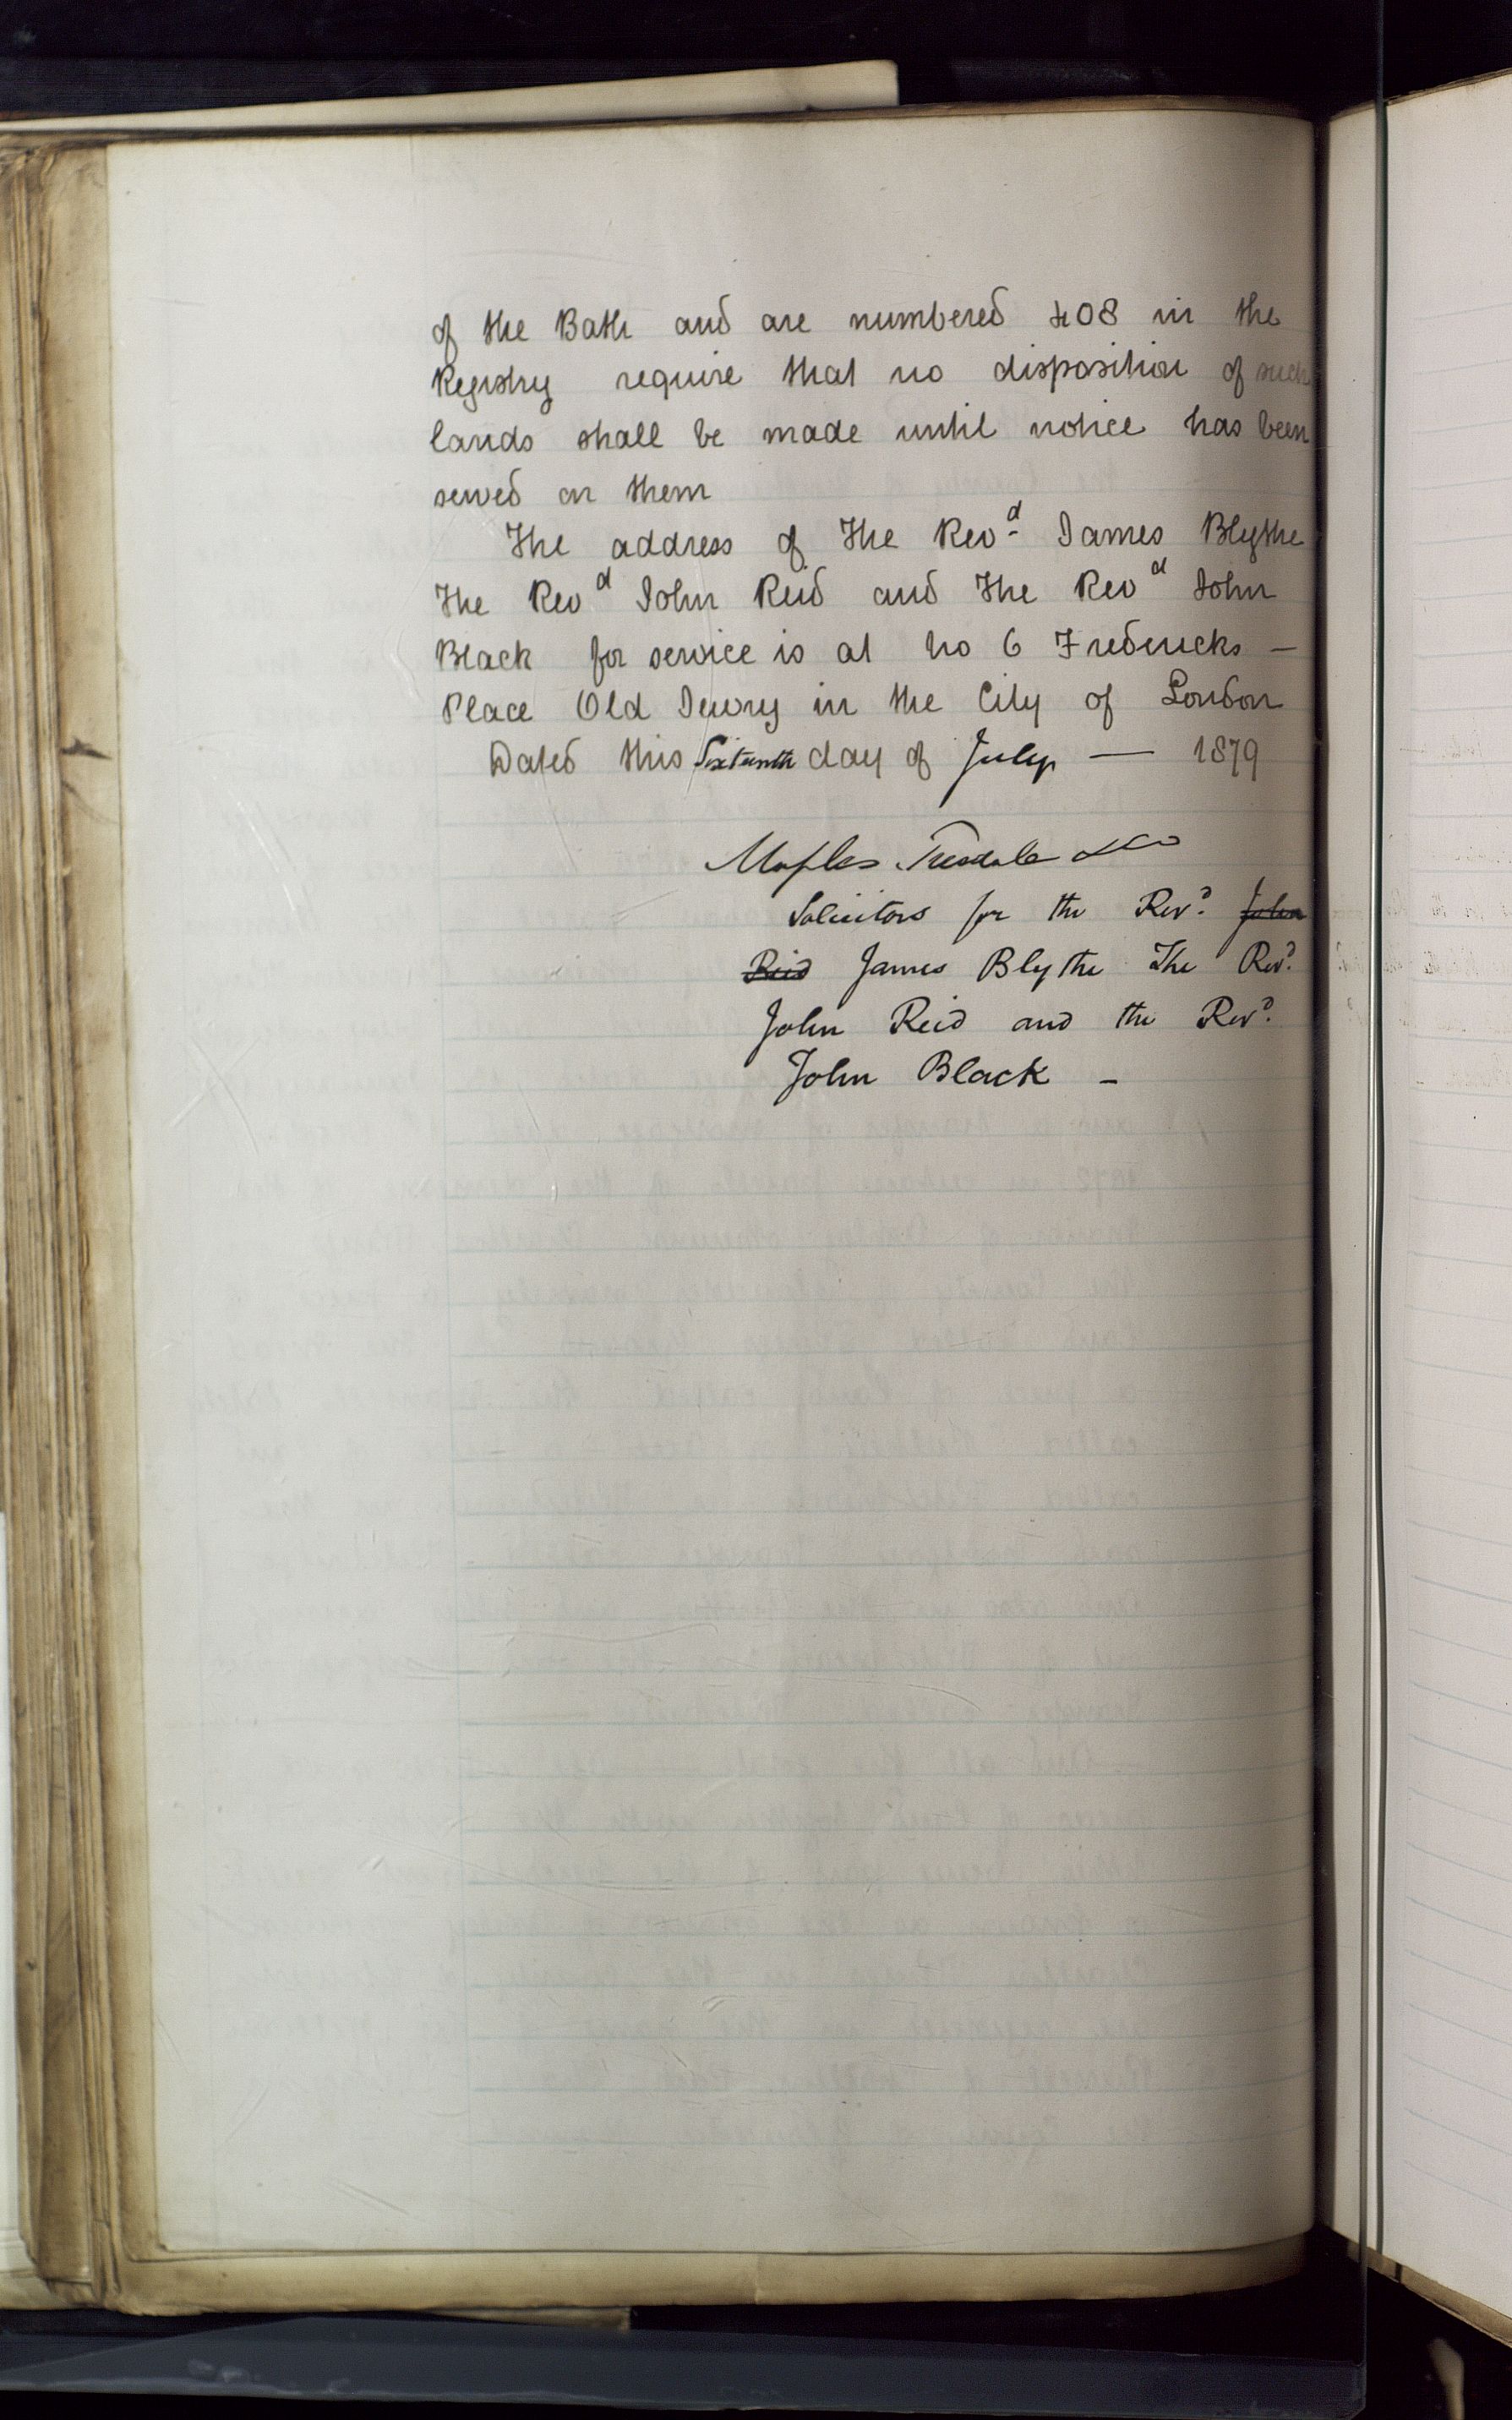 of the Bath and are numbered 408 in the
Registry require that no disposition of such
lands shall be made until notice has been
served on them
The address of The Revd James Blythe
The Revd John Reid and The Revd John
Black for service is at No 6 Fredericks —
Place Old Jewry in the City of London
Dated this Sixteenth day of July — 1879
Maples Teesdale & Co
Solicitors for the Revd. John
Reid James Blythe The Revd.
John Reid and the Revd.
John Black —